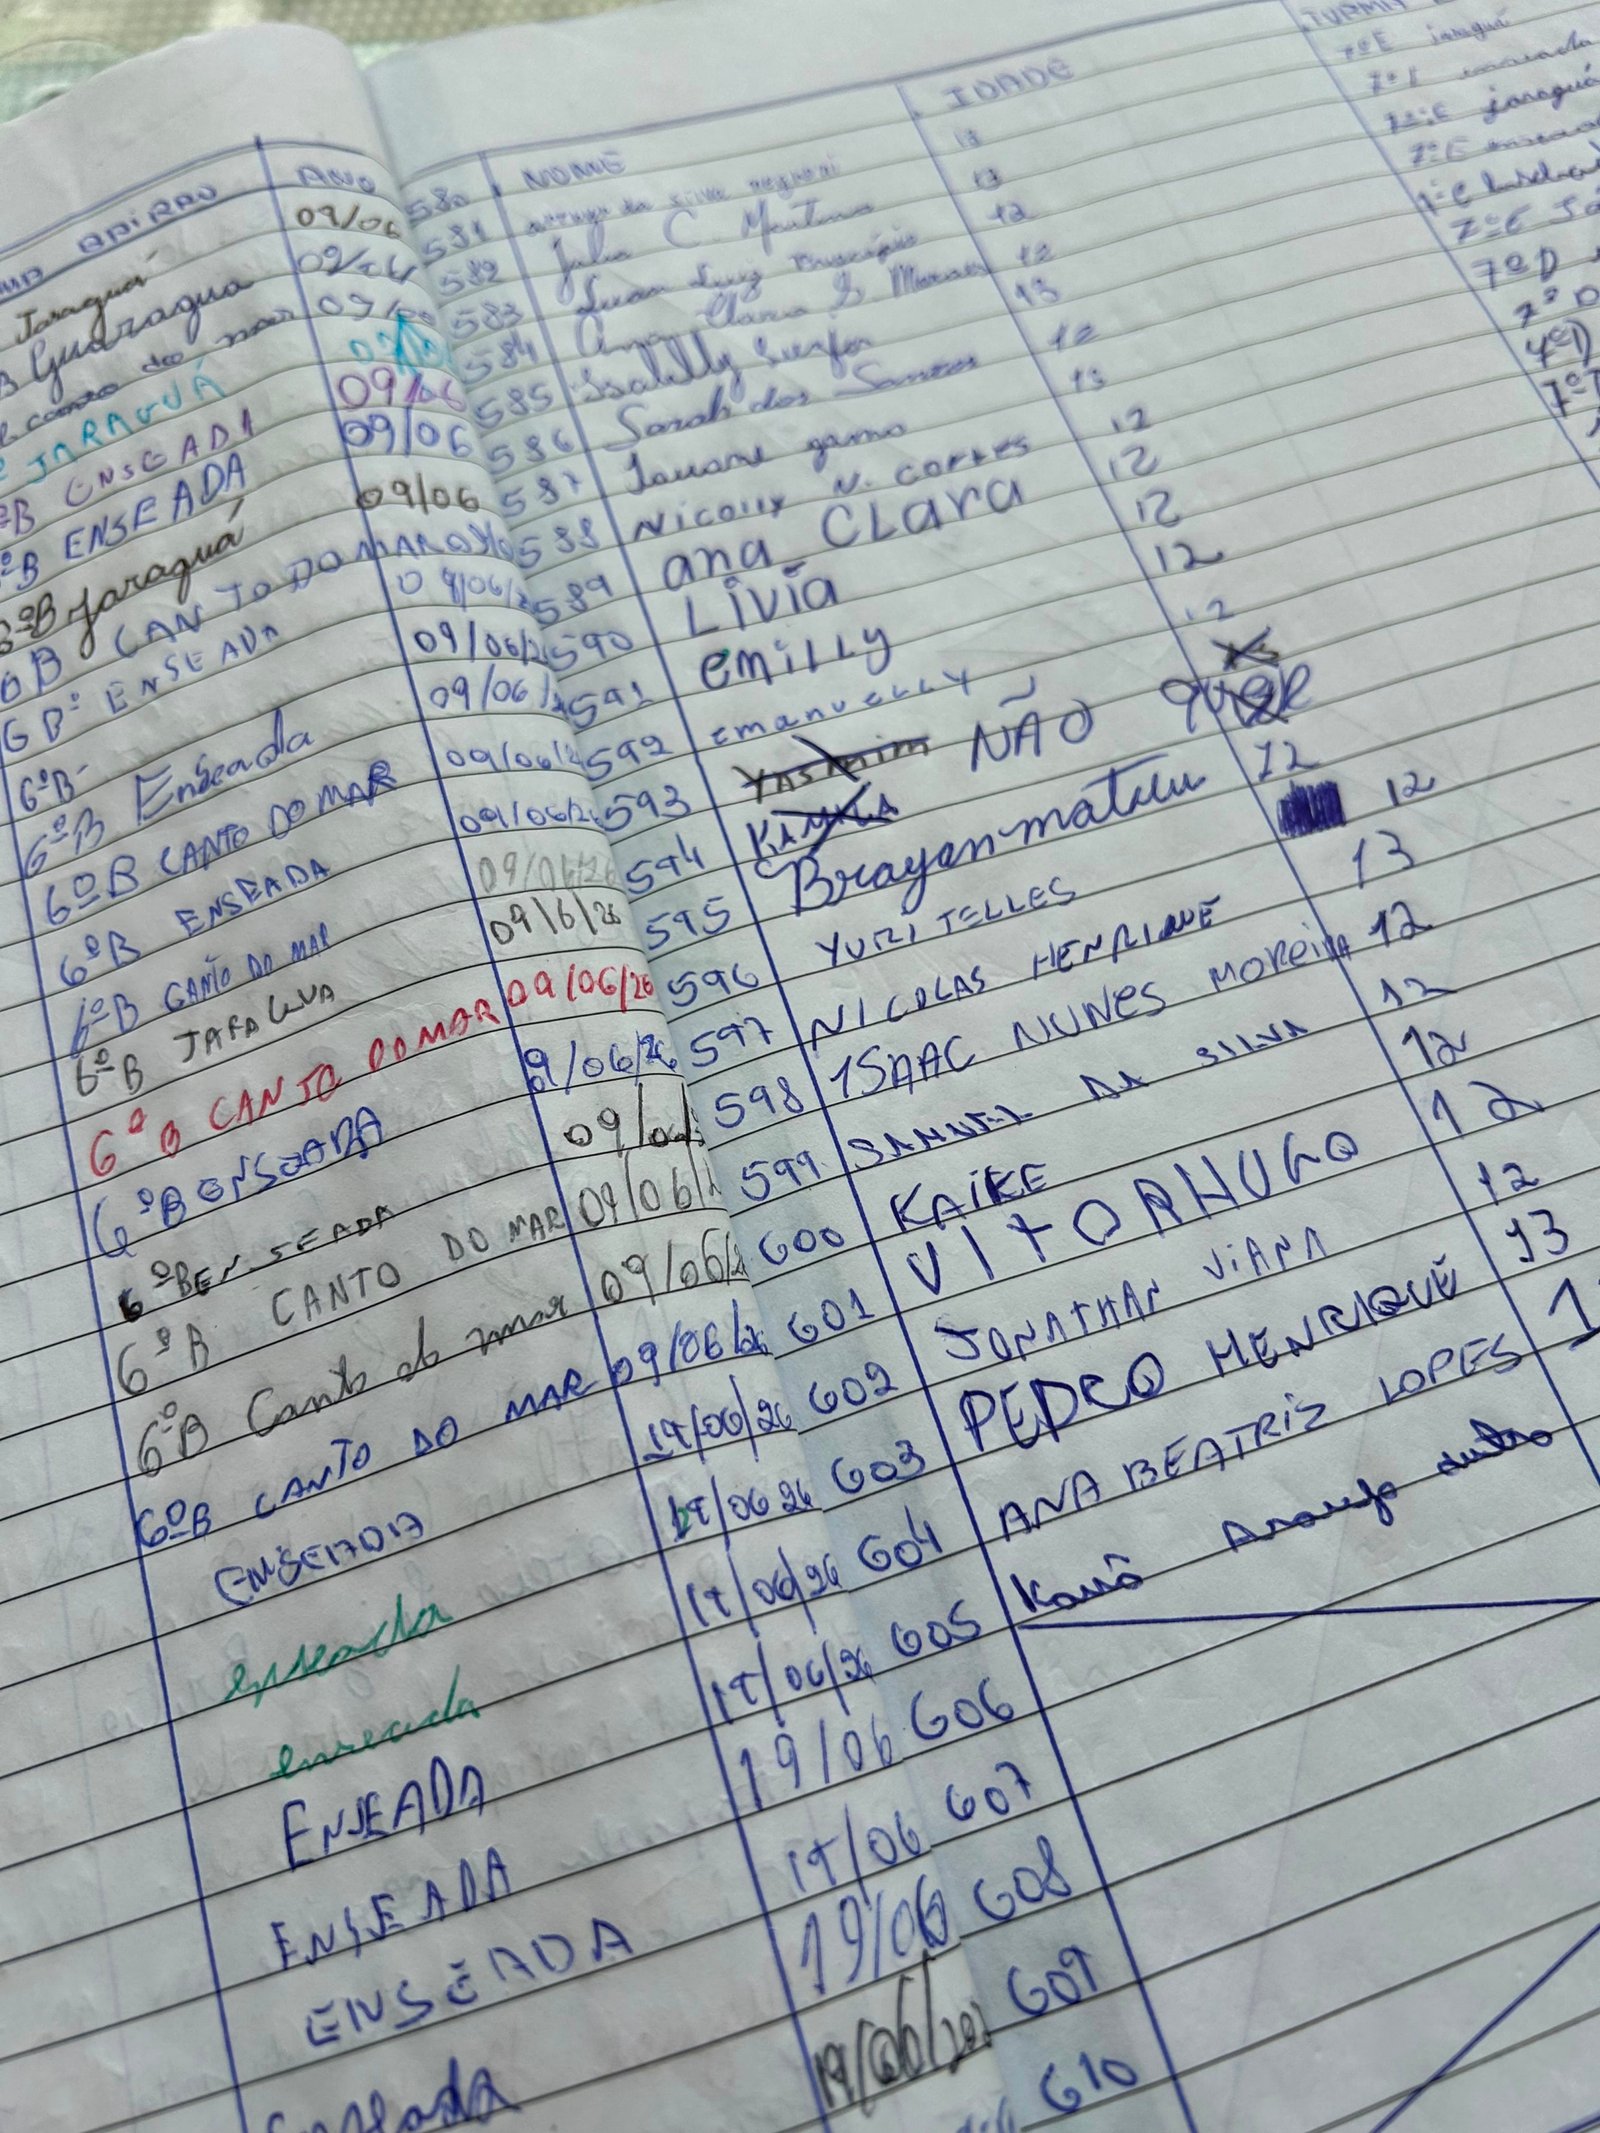 BAIRRO ANO
Jaraguá 09/06
Guaragua
canto do mar 09/
JARAGUÁ
ºB ENSEADA 09/06
ºB ENSEADA 09/06
6ºB Jaraguá 09/06
6B CANTO DO MAR
6Bº ENSEADA 09/06/
6ºB- 09/06/2
6ºB Enseada 09/06/2
6ºB CANTO DO MAR 09/06/2
6ºB ENSEADA 09/06/2
6ºB CANTO DO MAR 09/06/26
6ºB JARAGUA 09/6/26
6ºB CANTO DO MAR 09/06/26
6ºB ENSEADA 9/06/26
6ºB ENSEADA 09/06/
6ºB CANTO DO MAR 09/06/
6ºB Canto do mar 09/06/2
6ºB CANTO DO MAR 09/06/26
ENSEADA 19/06/26
enseada 19/06 26
enseada 19/06/26
ENSEADA 19/06/26
ENSEADA 19/06
ENSEADA 19/06
Enseada 19/06
19/06/202
NOME IDADE TURMA
580 13 7ºE jaraguá
581 Julia C. 13 7ºE enseada
582 Luan Luiz 12 7ºE jaraguá
583 Ana Clara S. Moraes 12 7ºE
584 Isabelly 13
585 Sarah dos Santos 12 7ºE
586 13 7ºD
587 Nicolly N. CORTES 12 7ºD
588 ana CLara 12 7ºD
589 Livia 12
590 emilly 12
591 emanuelly 12
592 Yasmim NÃO QUER
593 KAMILA
594 Brayan matheu 12
595 YURI TELLES 12
596 NICOLAS HENRIQUE 13
597 ISAAC NUNES MOREIRA 12
598 SAMUEL DA SILVA 12
599 KAIKE 12
600 VITOR HUGO 12
601 JONATHAN VIANA 12
602 PEDRO HENRIQUE 13
603 ANA BEATRIZ LOPES
604 Kauã Araujo
605
606
607
608
609
610